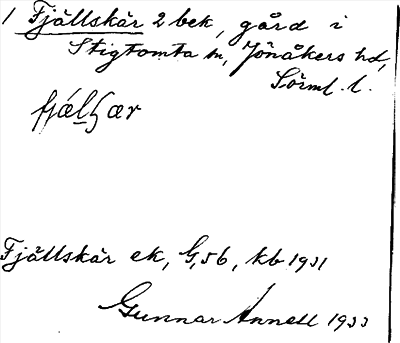 1 Fjällskär 2 bek, gård i
Stigtomta sn, Jönåkers hd,
Sörml. l.
fjä́lʃær
Fjällskär ek, G,56, kb 1931
Gunnar Annell 1933